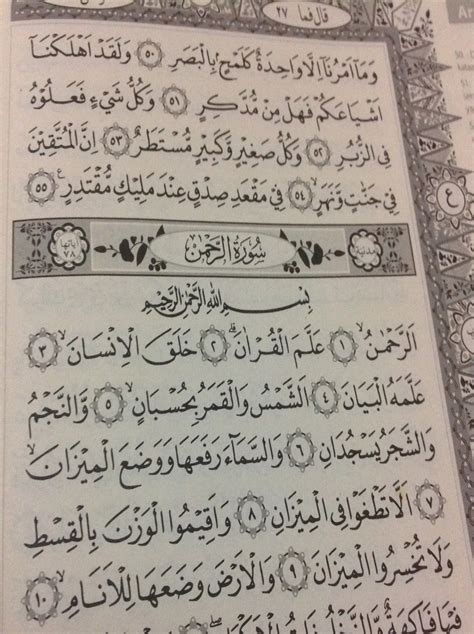 قال فما ٢٧
وَمَآ اَمْرُنَآ اِلَّا وَاحِدَةٌ كَلَمْحٍۢ بِالْبَصَرِ ٥٠ وَلَقَدْ اَهْلَكْنَآ
اَشْيَاعَكُمْ فَهَلْ مِنْ مُّدَّكِرٍ ٥١ وَكُلُّ شَيْءٍ فَعَلُوْهُ
فِى الزُّبُرِ ٥٢ وَكُلُّ صَغِيْرٍ وَّكَبِيْرٍ مُّسْتَطَرٌ ٥٣ اِنَّ الْمُتَّقِيْنَ
فِيْ جَنّٰتٍ وَّنَهَرٍ ٥٤ فِيْ مَقْعَدِ صِدْقٍ عِنْدَ مَلِيْكٍ مُّقْتَدِرٍ ࣖ ٥٥
مدنية سُوْرَةُ الرَّحْمٰنِ اٰياتها ٧٨
بِسْمِ اللّٰهِ الرَّحْمٰنِ الرَّحِيْمِ
اَلرَّحْمٰنُ ١ عَلَّمَ الْقُرْاٰنَ ٢ خَلَقَ الْاِنْسَانَ ٣
عَلَّمَهُ الْبَيَانَ ٤ اَلشَّمْسُ وَالْقَمَرُ بِحُسْبَانٍ ٥ وَّالنَّجْمُ
وَالشَّجَرُ يَسْجُدَانِ ٦ وَالسَّمَآءَ رَفَعَهَا وَوَضَعَ الْمِيْزَانَ
٧ اَلَّا تَطْغَوْا فِى الْمِيْزَانِ ٨ وَاَقِيْمُوا الْوَزْنَ بِالْقِسْطِ
وَلَا تُخْسِرُوا الْمِيْزَانَ ٩ وَالْاَرْضَ وَضَعَهَا لِلْاَنَامِ ١٠
فِيْهَا فَاكِهَةٌ وَّالنَّخْلُ
ع